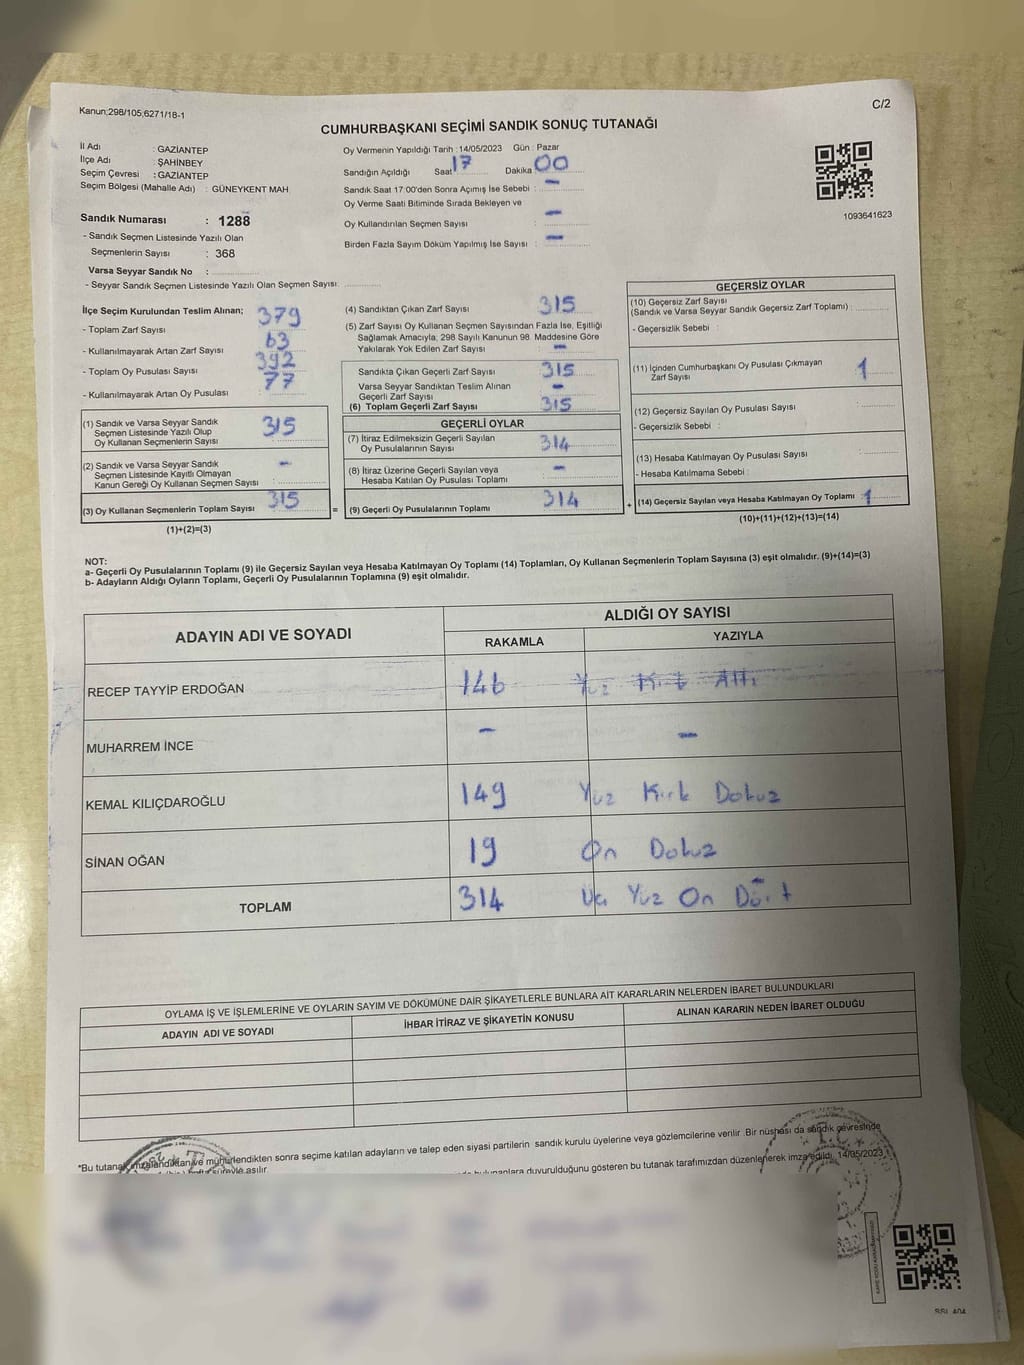 Kanun;298/105,6271/18-1
C/2
CUMHURBAŞKANI SEÇİMİ SANDIK SONUÇ TUTANAĞI
İl Adı : GAZİANTEP
İlçe Adı : ŞAHİNBEY
Seçim Çevresi : GAZİANTEP
Seçim Bölgesi (Mahalle Adı) : GÜNEYKENT MAH
Sandık Numarası : 1288
- Sandık Seçmen Listesinde Yazılı Olan
Seçmenlerin Sayısı : 368
Varsa Seyyar Sandık No :
- Seyyar Sandık Seçmen Listesinde Yazılı Olan Seçmen Sayısı:
Oy Vermenin Yapıldığı Tarih :14/05/2023 Gün : Pazar
Sandığın Açıldığı Saat 17 Dakika 00
Sandık Saat 17:00'den Sonra Açımış İse Sebebi : -
Oy Verme Saati Bitiminde Sırada Bekleyen ve
Oy Kullandırılan Seçmen Sayısı : -
Birden Fazla Sayım Döküm Yapılmış İse Sayısı : -
1093641623
İlçe Seçim Kurulundan Teslim Alınan;
- Toplam Zarf Sayısı 379
- Kullanılmayarak Artan Zarf Sayısı 63
- Toplam Oy Pusulası Sayısı 392
- Kullanılmayarak Artan Oy Pusulası 77
(1) Sandık ve Varsa Seyyar Sandık
Seçmen Listesinde Yazılı Olup
Oy Kullanan Seçmenlerin Sayısı 315
(2) Sandık ve Varsa Seyyar Sandık
Seçmen Listesinde Kayıtlı Olmayan
Kanun Gereği Oy Kullanan Seçmen Sayısı : -
(3) Oy Kullanan Seçmenlerin Toplam Sayısı 315
(1)+(2)=(3)
(4) Sandıktan Çıkan Zarf Sayısı 315
(5) Zarf Sayısı Oy Kullanan Seçmen Sayısından Fazla İse, Eşitliği
Sağlamak Amacıyla; 298 Sayılı Kanunun 98. Maddesine Göre
Yakılarak Yok Edilen Zarf Sayısı -
Sandıkta Çıkan Geçerli Zarf Sayısı 315
Varsa Seyyar Sandıktan Teslim Alınan
Geçerli Zarf Sayısı -
(6) Toplam Geçerli Zarf Sayısı 315
GEÇERLİ OYLAR
(7) İtiraz Edilmeksizin Geçerli Sayılan
Oy Pusulasının Sayısı 314
(8) İtiraz Üzerine Geçerli Sayılan veya
Hesaba Katılan Oy Pusulası Toplamı -
= (9) Geçerli Oy Pusulalarının Toplamı 314
GEÇERSİZ OYLAR
(10) Geçersiz Zarf Sayısı
(Sandık ve Varsa Seyyar Sandık Geçersiz Zarf Toplamı) :
- Geçersizlik Sebebi :
(11) İçinden Cumhurbaşkanı Oy Pusulası Çıkmayan
Zarf Sayısı 1
(12) Geçersiz Sayılan Oy Pusulası Sayısı
- Geçersizlik Sebebi :
(13) Hesaba Katılmayan Oy Pusulası Sayısı
- Hesaba Katılmama Sebebi :
+ (14) Geçersiz Sayılan veya Hesaba Katılmayan Oy Toplamı : 1
(10)+(11)+(12)+(13)=(14)
NOT:
a- Geçerli Oy Pusulalarının Toplamı (9) ile Geçersiz Sayılan veya Hesaba Katılmayan Oy Toplamı (14) Toplamları, Oy Kullanan Seçmenlerin Toplam Sayısına (3) eşit olmalıdır. (9)+(14)=(3)
b- Adayların Aldığı Oyların Toplamı, Geçerli Oy Pusulalarının Toplamına (9) eşit olmalıdır.
ADAYIN ADI VE SOYADI ALDIĞI OY SAYISI
RAKAMLA YAZIYLA
RECEP TAYYİP ERDOĞAN 146 Yüz Kırk Altı
MUHARREM İNCE - -
KEMAL KILIÇDAROĞLU 149 Yüz Kırk Dokuz
SİNAN OĞAN 19 On Dokuz
TOPLAM 314 Üç Yüz On Dört
OYLAMA İŞ VE İŞLEMLERİNE VE OYLARIN SAYIM VE DÖKÜMÜNE DAİR ŞİKAYETLERLE BUNLARA AİT KARARLARIN NELERDEN İBARET BULUNDUKLARI
ADAYIN ADI VE SOYADI İHBAR İTİRAZ VE ŞİKAYETİN KONUSU ALINAN KARARIN NEDEN İBARET OLDUĞU
*Bu tutanak imzalandıktan ve mühürlendikten sonra seçime katılan adayların ve talep eden siyasi partilerin sandık kurulu üyelerine veya gözlemcilerine verilir .Bir nüshası da sandık çevresinde
süreyle asılır. bulunanlara duyurulduğunu gösteren bu tutanak tarafımızdan düzenlenerek imza edildi. 14/05/2023